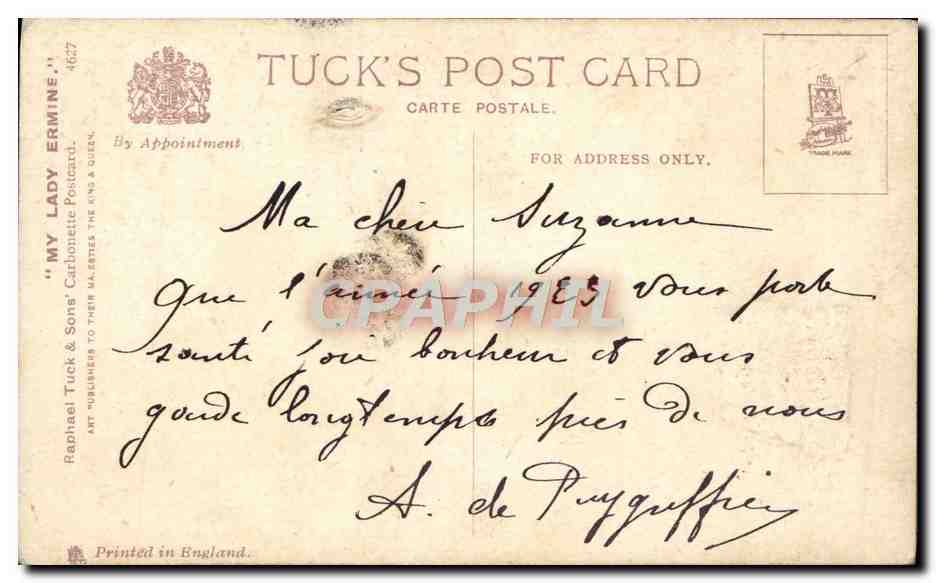 TUCK'S POST CARD
CARTE POSTALE.
By Appointment
FOR ADDRESS ONLY.
TRADE MARK
"MY LADY ERMINE." 4627
Raphael Tuck & Sons' Carbonette Postcard.
ART PUBLISHERS TO THEIR MAJESTIES THE KING & QUEEN.
Ma chère Suzanne
que l'année 1925 vous porte
santé joie bonheur et vous
garde longtemps près de nous
A. de Puygreffier
CPAPHIL
Printed in England.